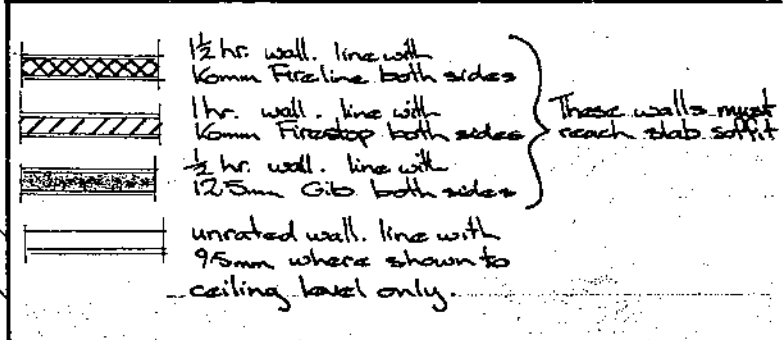 1½ hr. wall. line with
16mm Fireline both sides
1 hr. wall. line with
16mm Firestop both sides
½ hr. wall. line with
12.5mm Gib both sides
These walls must
reach slab soffit
unrated wall. line with
9.5mm where shown to
ceiling level only.